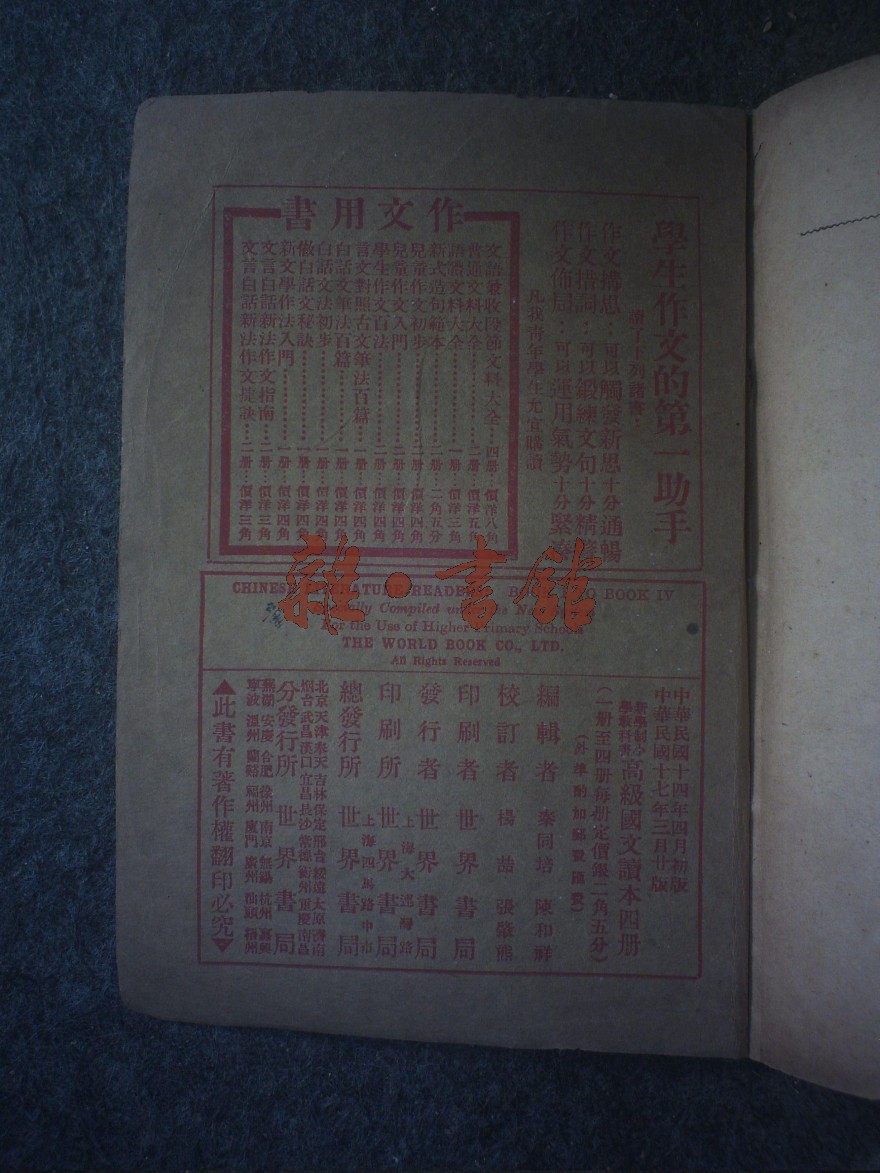 學生作文的第一助手
讀了下列諸書：
作文構思：可以觸發新思十分通暢
作文措詞：可以鍛練文句十分精
作文佈局：可以運用氣勢十分緊湊
凡我青年學生尤宜購讀
作文用書
文語彙收段節文料大全…四册…價洋八角
普通文料大全…二册…價洋五角
語體文料大全…一册…價洋三角
新式造句範本…二册…二角五分
兒童作文初步…二册…價洋四角
兒童作文入門…二册…價洋四角
學生作文百法…二册…價洋四角
言文對照古文筆法百篇…二册…價洋四角
白話文筆法百篇…一册…價洋四角
白話文法初步…一册…價洋四角
做白話文秘訣…一册…價洋四角
新文學作法入門…一册…價洋四角
文言白話新法作文指南…二册…價洋三角
文言白話新法作文秘訣…二册…價洋三角
雜·書館
CHINESE LITERATURE READER BOOK IV
Compiled
For the Use of Higher Primary Schools
THE WORLD BOOK CO., LTD.
All Rights Reserved
中華民國十四年四月初版
中華民國十七年三月廿版
新學制小學教科書高級國文讀本四册
（一册至四册每册定價銀二角五分）
（外埠酌加郵費匯費）
編輯者 秦同培 陳和祥
校訂者 楊喆 張肇熊
印刷者 世界書局
發行者 世界書局
印刷所 上海大連灣路 世界書局
總發行所 上海四馬路中市 世界書局
北京 天津 奉天 吉林 保定 邢台 綏遠 太原 濟南
烟台 武昌 漢口 宜昌 長沙 常德 衡州 重慶 南昌
分發行所 世界書局
蕪湖 安慶 合肥 徐州 南京 無錫 杭州 嘉興
寧波 溫州 蘭谿 福州 廈門 廣州 汕頭 梧州
▲此書有著作權翻印必究▼